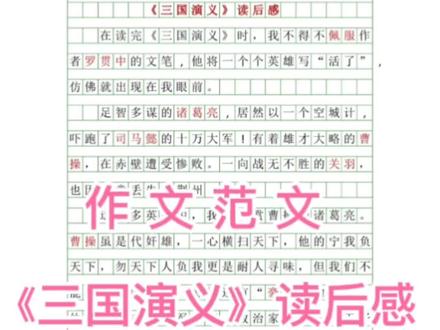 《三国演义》读后感
在读完《三国演义》时，我不得不佩服作
者罗贯中的文笔，他将一个个英雄写“活了”，
仿佛就出现在我眼前。
足智多谋的诸葛亮，居然以一个空城计，
吓跑了司马懿的十万大军！有着雄才大略的曹
操，在赤壁遭受惨败。一向战无不胜的关羽，
也因
荆州
多英
我
曹操
诸葛亮。
曹操虽是代奸雄，一心横扫天下，他的宁我负
天下，勿天下人负我更是耐人寻味，但我们不
政治家
作文范文
《三国演义》读后感